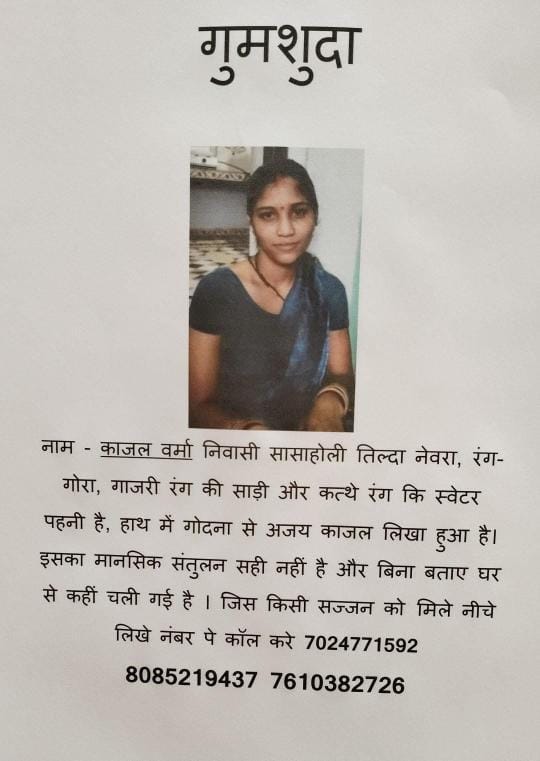 गुमशुदा
नाम - काजल वर्मा निवासी सासाहोली तिल्दा नेवरा, रंग-
गोरा, गाजरी रंग की साड़ी और कत्थे रंग कि स्वेटर
पहनी है, हाथ में गोदना से अजय काजल लिखा हुआ है।
इसका मानसिक संतुलन सही नहीं है और बिना बताए घर
से कहीं चली गई है । जिस किसी सज्जन को मिले नीचे
लिखे नंबर पे कॉल करे 7024771592
8085219437 7610382726